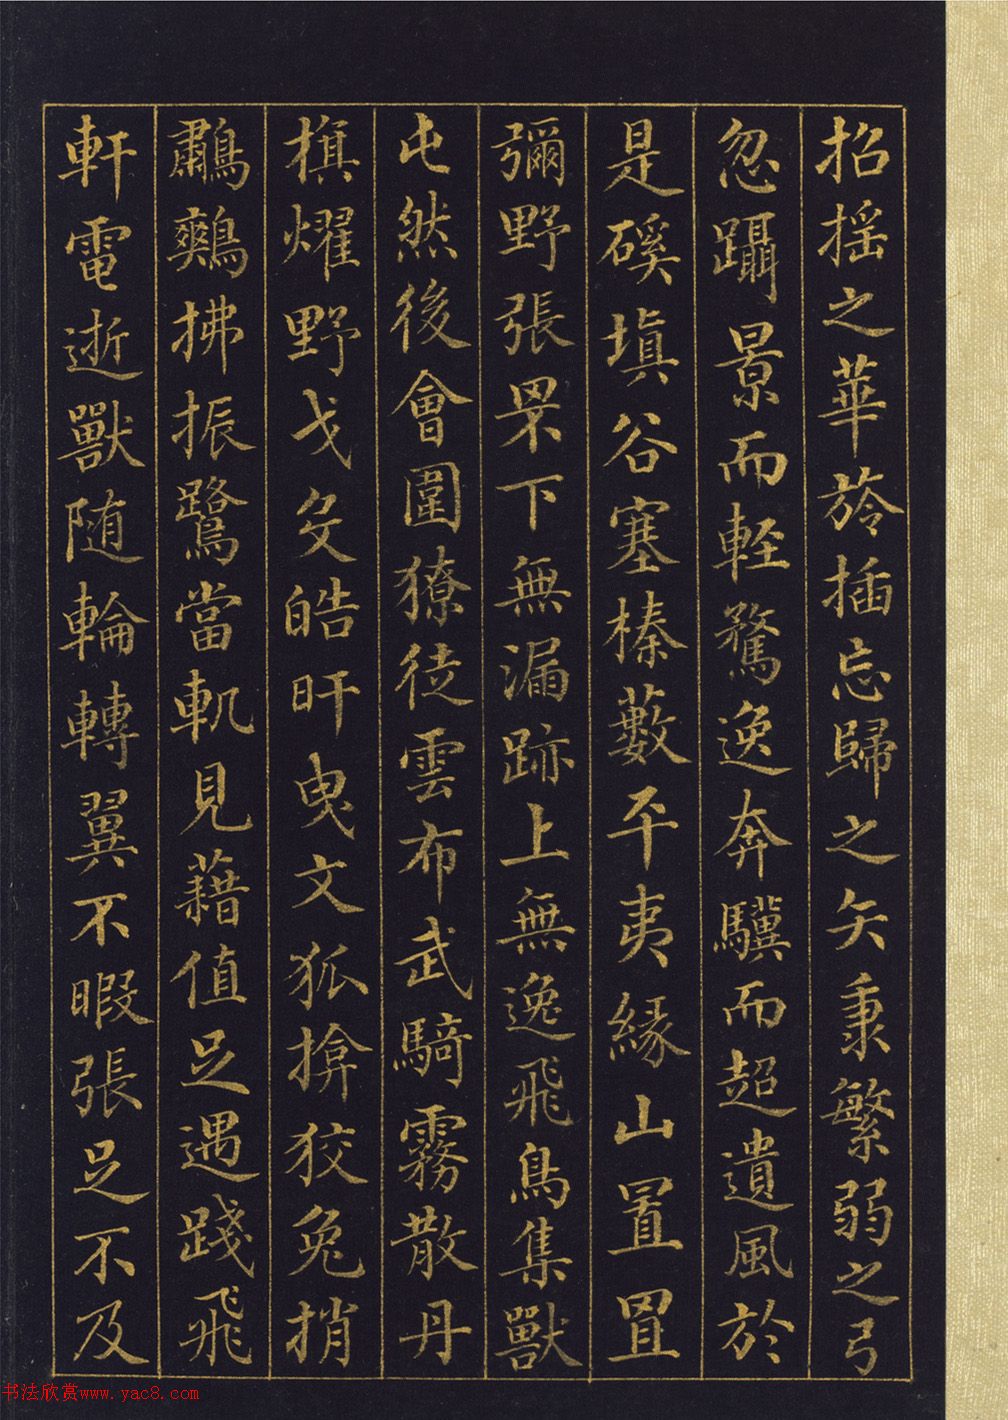 招揺之華旍插忘歸之矢秉繁弱之弓
忽躡景而輕騖逸奔驥而超遺風於
是磎填谷塞榛藪平夷緣山置罝
彌野張罘下無漏跡上無逸飛鳥集獸
屯然後會圍獠徒雲布武騎霧散丹
旗燿野戈殳皓旰曳文狐揜狡兔捎
鷫鷞拂振鷺當軌見藉值足遇踐飛
軒電逝獸随輪轉翼不暇張足不及
书法欣赏www.yac8.com